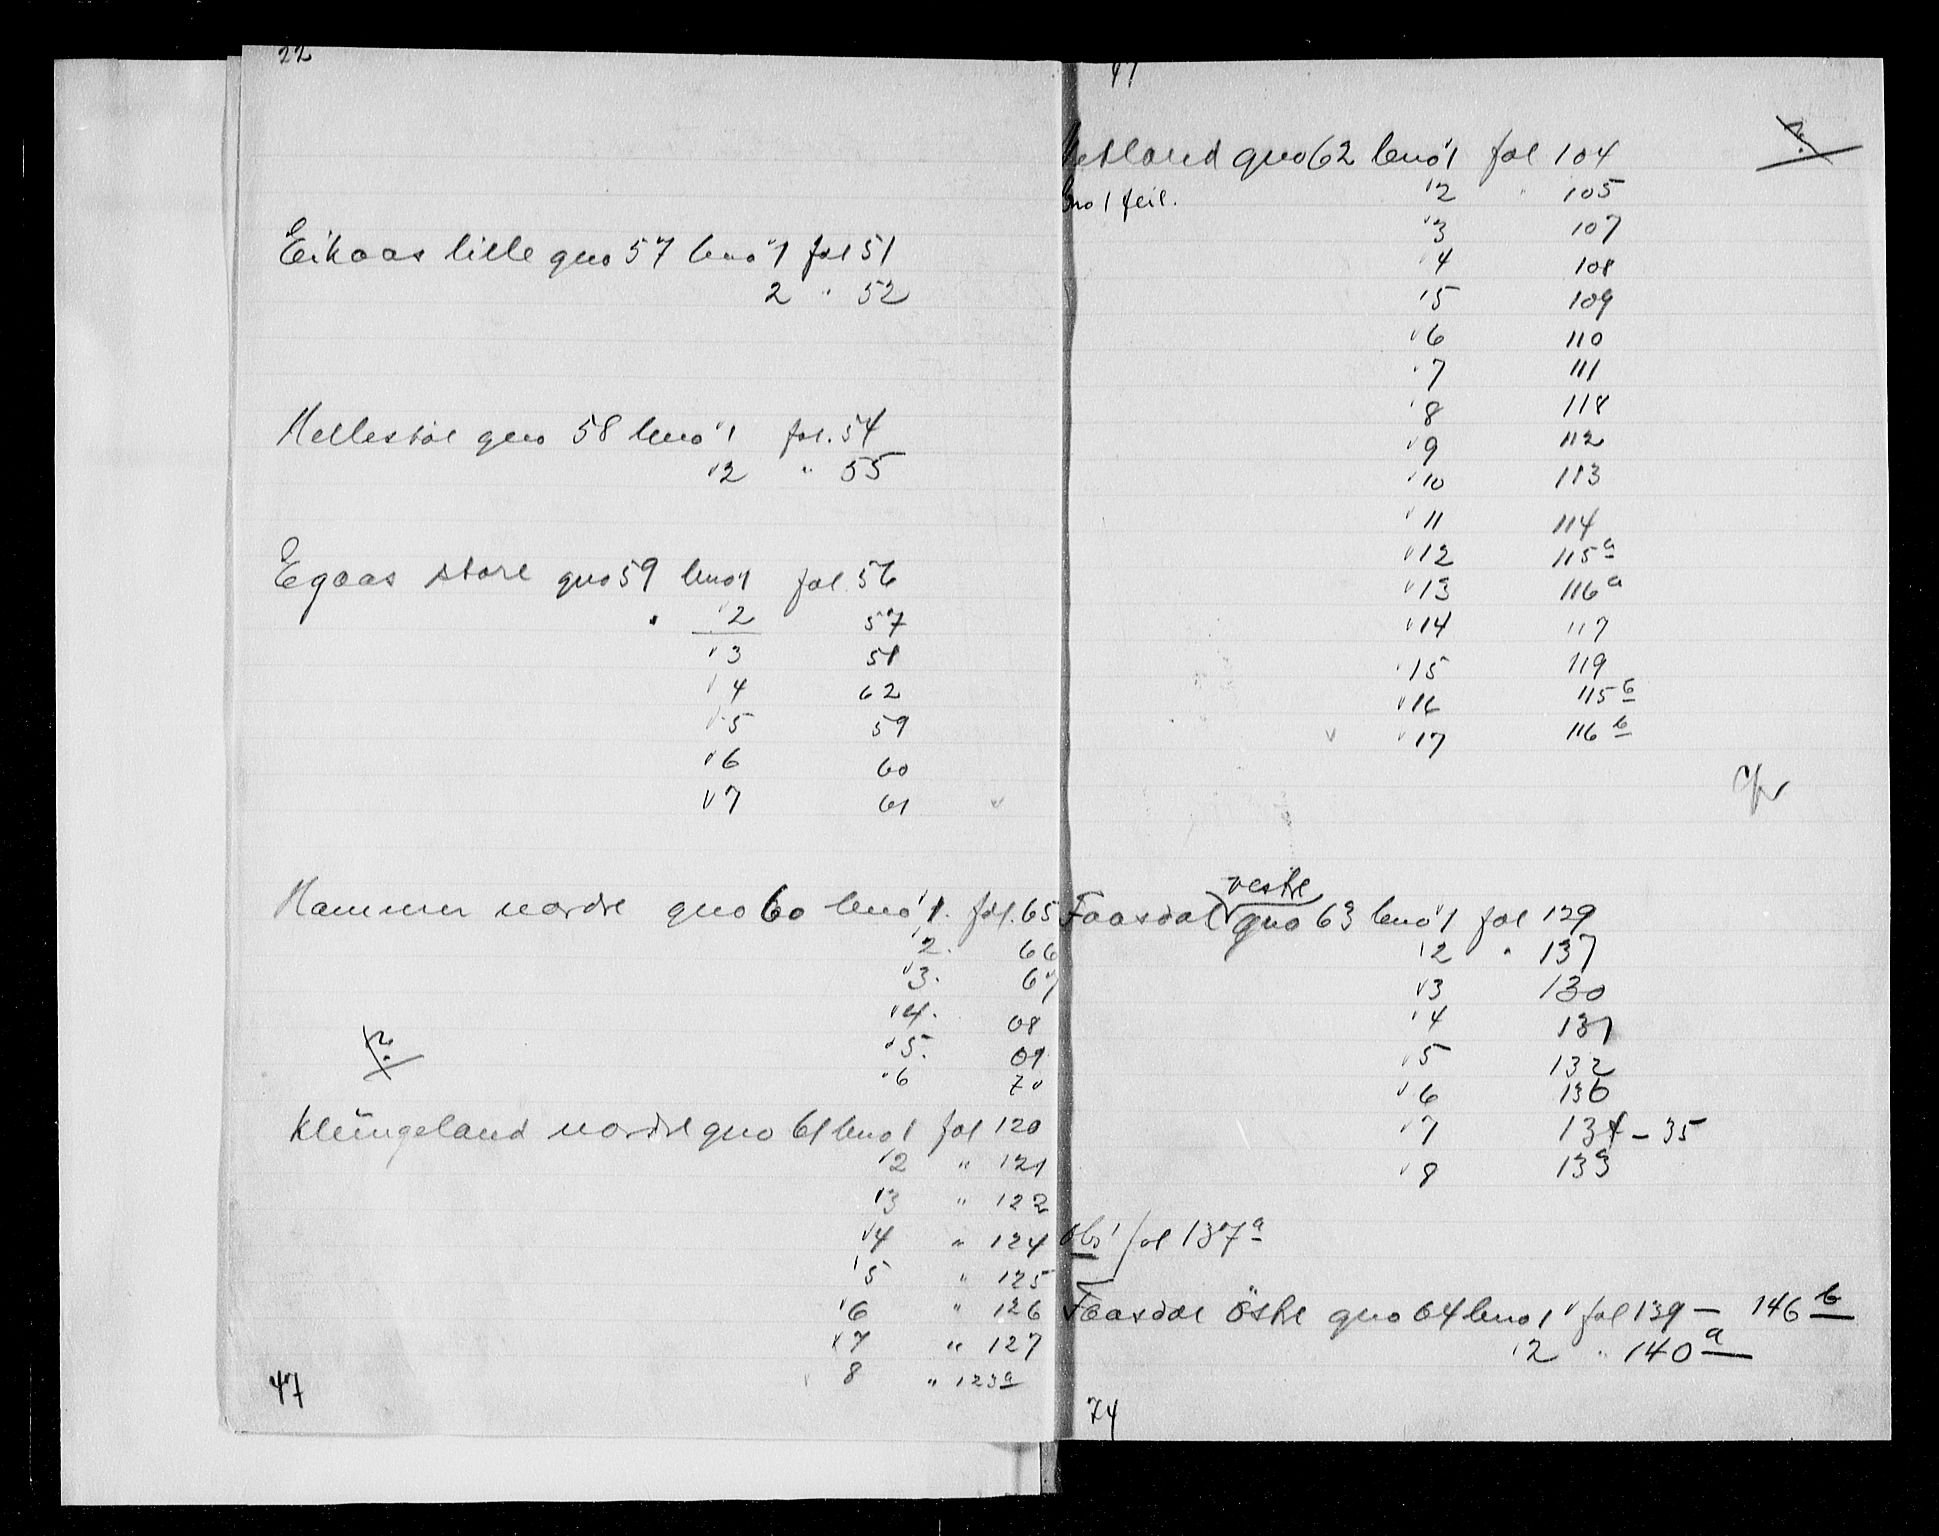 22
Eikaas lille gno 57 bno 1 fol 51
2 " 52
Hellestöl gno 58 bno 1 fol. 54
2 " 55
Egaas store gno 59 bno 1 fol. 56
2 57
3 58
4 62
5 59
6 60
7 61
Hammer nordre gno 60 bno 1. fol. 65
2. 66
3. 67
4. 68
5. 69
6 70
Klüngeland nordre gno 61 bno 1 fol 120
2 " 121
3 " 122
4 " 124
5 " 125
6 " 126
7 " 127
8 " 123a
47
47
gno 62 bno 1 fol 104
Gno 1 feil. 2 " 105
3 107
4 108
5 109
6 110
7 111
8 118
9 112
10 113
11 114
12 115a
13 116a
14 117
15 119
16 115b
17 116b
vestre
Faasdal gno 63 bno 1 fol 129
2 " 137
3 130
4 131
5 132
6 136
7 134-35
8 133
Obs! fol 137a
Faasdal östre gno 64 bno 1 fol 139 — 146b
2 " 140a
74